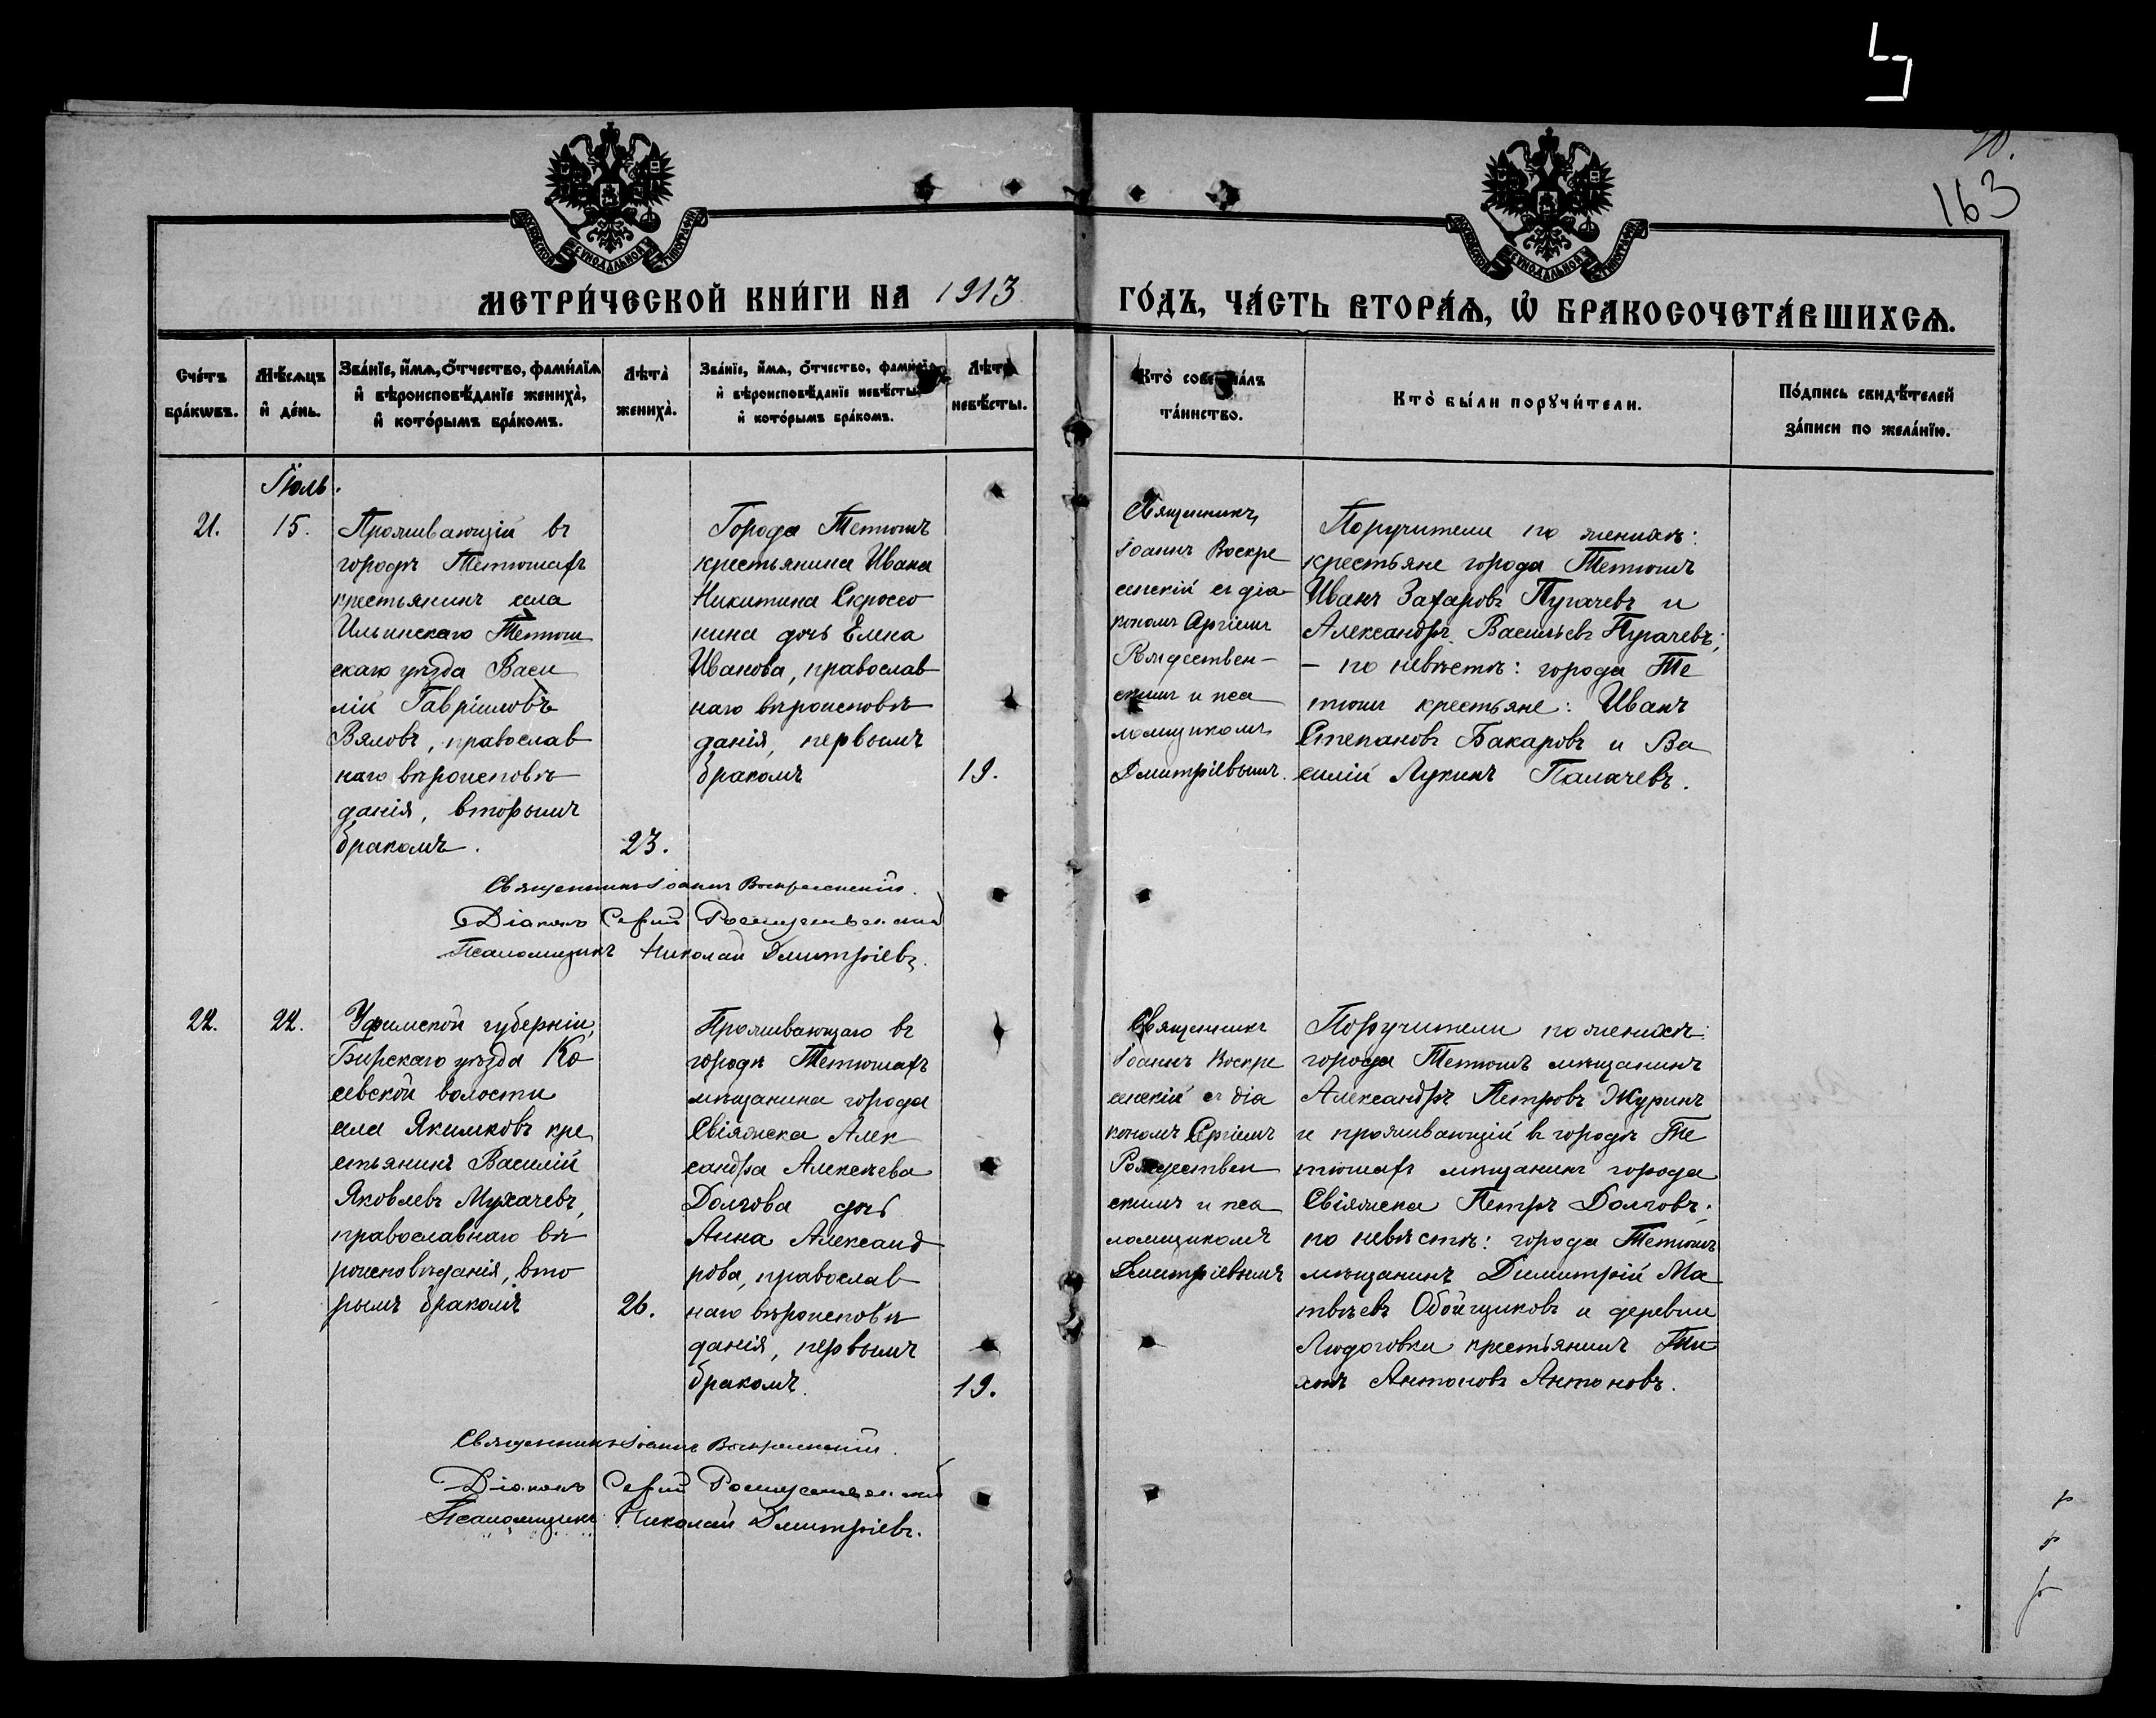 20.
163
МЕТРИ́ЧЕСКОЙ КНИ́ГИ НА 1913
ГО́ДЪ, ЧА́СТЬ ВТОРА́Ѧ, Ѡ҆ БРАКОСОЧЕТА́ВШИХСѦ.
Сче́тъ бра́кѡвъ.
Мѣ́сѧцъ и҆ де́нь.
Зва́нїе, и҆́мѧ, ѻ҆́тчество, фами́лїѧ
и҆ вѣроисповѣ́данїе жениха̀,
и҆ кото́рымъ бра́комъ.
Лѣ́та̀ жениха̀.
Зва́нїе, и҆́мѧ, ѻ҆́тчество, фами́лїѧ
и҆ вѣроисповѣ́данїе невѣ́сты,
и҆ кото́рымъ бра́комъ.
Лѣ́та̀ невѣ́сты.
Кто̀ соверша́лъ
та́инство.
Кто̀ бы́ли порꙋчи́тели.
По́дпись свидѣ́телей
за́писи по жела́нїю.
Іюль.
21.
15.
Проживающій въ
городѣ Тетюшахъ
крестьянинъ села
Ильинскаго Тетюш
скаго уѣзда Васи
лій Гавріиловъ
Вяловъ, православ
наго вѣроисповѣ
данія, вторымъ
бракомъ.
23.
Города Тетюшъ
крестьянина Ивана
Никитина
нина дочь Елена
Иванова, православ
наго вѣроисповѣ
данія, первымъ
бракомъ
19.
Священникъ
Іоаннъ Воскре
сенскій съ діа-
кономъ Сергіемъ
Рождествен-
скимъ и пса
ломщикомъ
Дмитріевымъ.
Поручители по женихѣ:
крестьяне города Тетюшъ
Иванъ Захаровъ Пугачевъ и
Александръ Васильевъ Пугачевъ;
– по невѣстѣ: города Те
тюшъ крестьяне: Иванъ
Степановъ Бакаровъ и Ва
силій Лукинъ Палачевъ.
Священникъ Іоаннъ Воскресенскій.
Діаконъ Сергій Рождественскій
Псаломщикъ Николай Дмитріевъ.
22.
22.
Уфимской губерніи,
Бирскаго уѣзда Ка
севской волости
села Якимковъ кре
стьянинъ Василій
Яковлевъ Мухачевъ,
православнаго вѣ
роисповѣданія, вто
рымъ бракомъ
26.
Проживающаго въ
городѣ Тетюшахъ
мѣщанина города
Свіяжска Алек
сандра Алексѣева
Долгова дочь
Анна Александ
рова, православ
наго вѣроисповѣ
данія, первымъ
бракомъ.
19.
Священникъ
Іоаннъ Воскре
сенскій съ діа
кономъ Сергіемъ
Рождествен
скимъ и пса
ломщикомъ
Дмитріевымъ
Поручители по женихѣ:
города Тетюшъ мѣщанинъ
Александръ Петровъ Журинъ
и проживающій въ городѣ Те
тюшахъ мѣщанинъ города
Свіяжска Петръ Долговъ;
по невѣстѣ: города Тетюшъ
мѣщанинъ Димитрій Ма
твѣевъ Обойщиковъ и деревни
Людоговки крестьянинъ Ти
хонъ Антоновъ Антоновъ.
Священникъ Іоаннъ Воскресенскій.
Діаконъ Сергій Рождественскій
Псаломщикъ Николай Дмитріевъ.